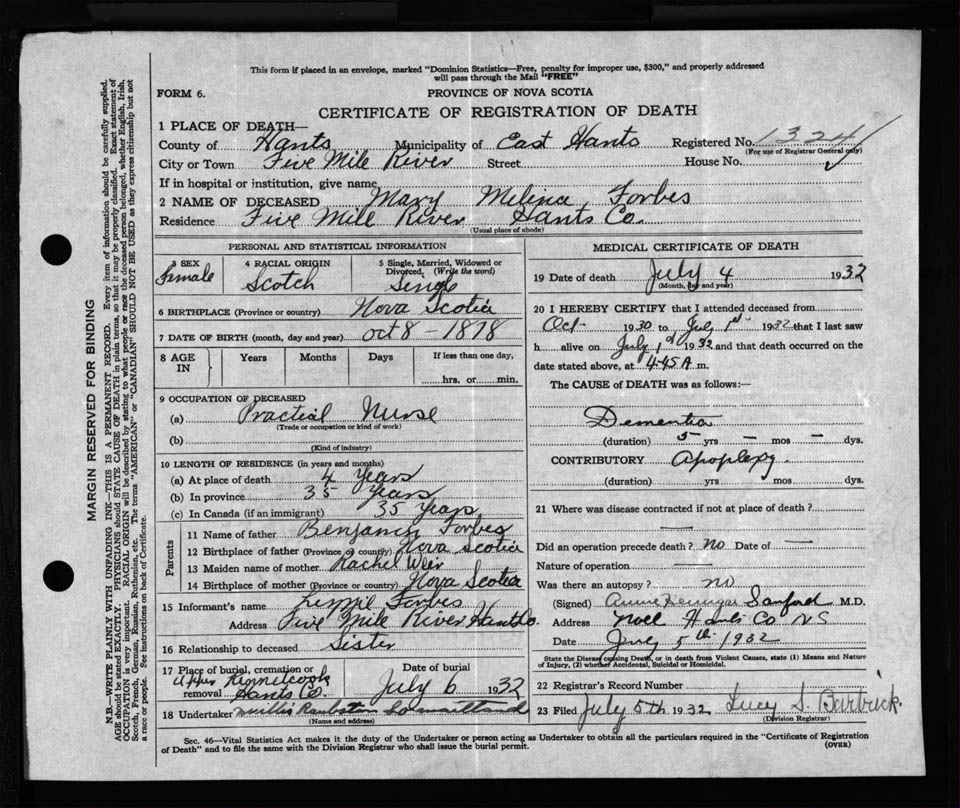 This form if placed in an envelope, marked "Dominion Statistics—Free, penalty for improper use, $300," and properly addressed
will pass through the Mail "FREE"
FORM 6.
PROVINCE OF NOVA SCOTIA
CERTIFICATE OF REGISTRATION OF DEATH
1 PLACE OF DEATH—
County of Hants Municipality of East Hants Registered No. 1324
(For use of Registrar General only)
City or Town Five Mile River Street House No.
If in hospital or institution, give name
2 NAME OF DECEASED Mary Melina Forbes
Residence Five Mile River Hants Co.
(Usual place of abode)
PERSONAL AND STATISTICAL INFORMATION
3 SEX 4 RACIAL ORIGIN 5 Single, Married, Widowed or
Divorced, (Write the word)
Female Scotch Single
6 BIRTHPLACE (Province or country) Nova Scotia
7 DATE OF BIRTH (month, day and year) Oct 8 - 1878
8 AGE IN Years Months Days If less than one day,
hrs. or min.
9 OCCUPATION OF DECEASED
(a) Practial Nurse
(Trade or occupation or kind of work)
(b)
(Kind of industry)
10 LENGTH OF RESIDENCE (in years and months)
(a) At place of death 4 Years
(b) In province 35 Years
(c) In Canada (if an immigrant) 35 Years
Parents
11 Name of father Benjamin Forbes
12 Birthplace of father (Province or country) Nova Scotia
13 Maiden name of mother Rachel Weir
14 Birthplace of mother (Province or country) Nova Scotia
15 Informant's name Forbes
Address Five Mile River Hants Co
16 Relationship to deceased Sister
17 Place of burial, cremation or Date of burial
removal Upper Kennetcook Hants Co. July 6 1932
18 Undertaker Willis
(Name and address)
MEDICAL CERTIFICATE OF DEATH
19 Date of death July 4 1932
(Month, day and year)
20 I HEREBY CERTIFY that I attended deceased from
Oct 1930 to July 1st 1932 that I last saw
h alive on July 1st 1932 and that death occurred on the
date stated above, at 4.45 A m.
The CAUSE OF DEATH was as follows:—
Dementia
(duration) 5 yrs — mos — dys.
CONTRIBUTORY Apoplexy
(duration) yrs mos dys.
21 Where was disease contracted if not at place of death?
—
Did an operation precede death? No Date of —
Nature of operation —
Was there an autopsy? no
(Signed) Annie Sanford M.D.
Address Noel Hants Co NS
Date July 5th 1932
State the Disease causing Death, or in death from Violent Causes, state (1) Means and Nature
of Injury, (2) whether Accidental, Suicidal or Homicidal.
22 Registrar's Record Number
23 Filed July 5th 1932 Lucy S. Barbrick
(Division Registrar)
Sec. 46—Vital Statistics Act makes it the duty of the Undertaker or person acting as Undertaker to obtain all the particulars required in the "Certificate of Registration
of Death" and to file the same with the Division Registrar who shall issue the burial permit.
(OVER)
MARGIN RESERVED FOR BINDING
N.B.—WRITE PLAINLY WITH UNFADING INK—THIS IS A PERMANENT RECORD. Every item of information should be carefully supplied.
AGE should be stated EXACTLY. PHYSICIANS should STATE CAUSE OF DEATH in plain terms, so that it may be properly classified. Exact statement of
OCCUPATION is very important. RACIAL ORIGIN will be described by stating to what people or race the deceased person belonged, whether English, Irish,
Scotch, French, German, Russian, Ruthenian, etc. The terms "AMERICAN" or "CANADIAN" SHOULD NOT BE USED as they express citizenship but not
a race or people. See instructions on back of Certificate.